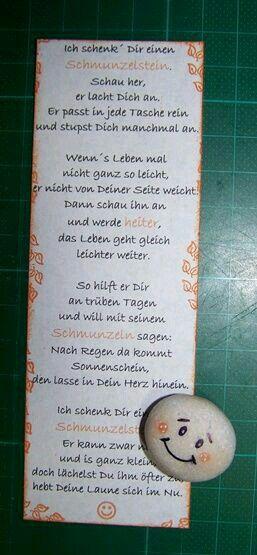 Ich schenk´ Dir einen
Schmunzelstein.
Schau her,
er lacht Dich an.
Er passt in jede Tasche rein
und stupst Dich manchmal an.
Wenn´s Leben mal
nicht ganz so leicht,
er nicht von Deiner Seite weicht.
Dann schau ihn an
und werde heiter,
das Leben geht gleich
leichter weiter.
So hilft er Dir
an trüben Tagen
und will mit seinem
Schmunzeln sagen:
Nach Regen da kommt
Sonnenschein,
den lasse in Dein Herz hinein.
Ich schenk Dir
Er kann zwar
und is ganz klein
doch lächelst Du ihm öfter
hebt Deine Laune sich im Nu.